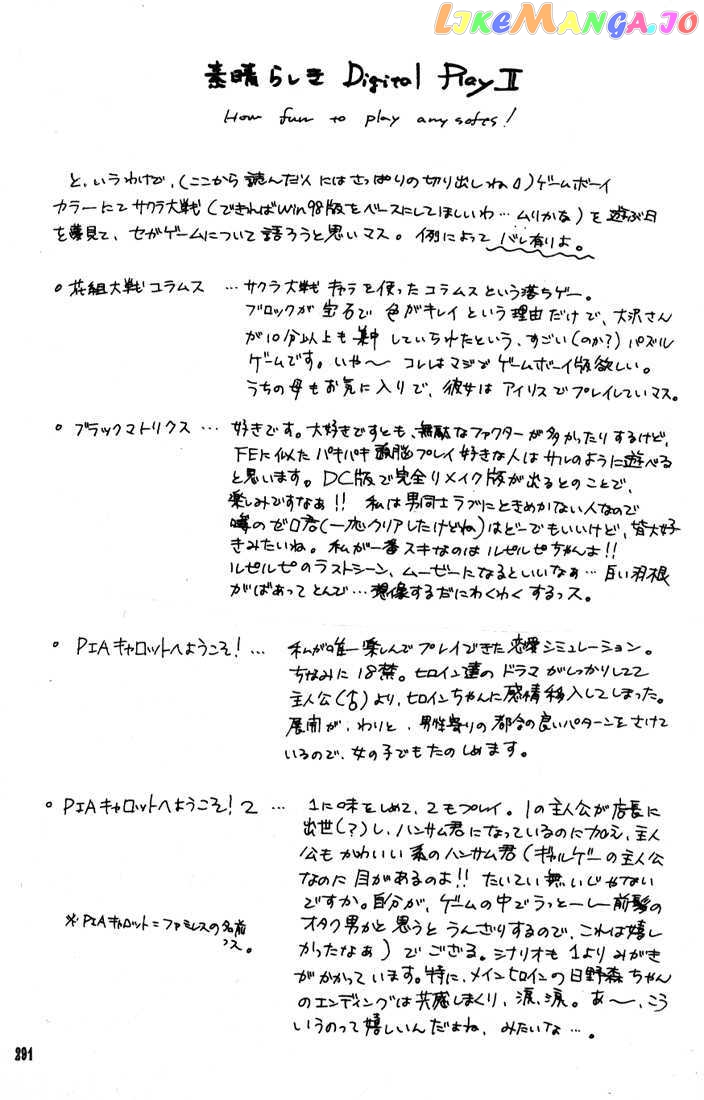 LIKEMANGA.IO
素晴らしき Digital Play II
How fun to play any softs!
と、いうわけで、(ここから読んだ人にはさっぱりの切り出しね)ゲームボーイ
カラーにてサクラ大戦(できればWin98版をベースにしてほしいわ…ムリかな)を遊ぶ日
を夢見て、セガゲームについて語ろうと思いマス。例によってバレ有りよ。
○花組大戦コラムス …サクラ大戦キャラを使ったコラムスという落ちゲー。
ブロックが宝石で色がキレイという理由だけで、大沢さん
が10分以上も集中していられたという、すごい(のか?)パズル
ゲームです。いや〜コレはマジでゲームボーイ版欲しい。
うちの母もお気に入りで、彼女はアイリスでプレイしていマス。
○ブラックマトリクス … 好きです。大好きですとも、無駄なファクターが多かったりするけど、
FEに似たパキパキ頭脳プレイ好きな人はサルのように遊べる
と思います。DC版で完全リメイク版が出るとのことで、
楽しみですなぁ!! 私は男同士ラブにときめかない人なので
噂のゼロ君(一応クリアしたけどね)はどーでもいいけど、皆大好
きみたいね。私が一番スキなのはルピルピちゃんよ!!
ルピルピのラストシーン、ムービーになるといいなぁ…白い羽根
がばあってとんで…想像するだにわくわくするっス。
○PIAキャロットへようこそ! … 私が唯一楽しんでプレイできた恋愛シミュレーション。
ちなみに18禁。ヒロイン達のドラマがしっかりしてて
主人公(♂)より、ヒロインちゃんに感情移入してしまった。
展開が、わりと、男性寄りの都合の良いパターンをさけて
いるので、女の子でもたのしめます。
○PIAキャロットへようこそ!2 … 1に味をしめて、2もプレイ。1の主人公が店長に
出世(?)し、ハンサム君になっているのに加え、主人
公もかわいい系のハンサム君(ギャルゲーの主人公
なのに目があるのよ!! たいてい無いじゃない
ですか。自分が、ゲームの中でうっとーしー前髪の
オタク男かと思うとうんざりするので、これは嬉し
かったなぁ)でござる。シナリオも1よりみがき
がかかっています。特に、メインヒロインの日野森ちゃん
のエンディングは共感しまくり、涙、涙。あ〜、こう
いうのって嬉しいんだよね、みたいな…。
※PIAキャロット=ファミレスの名前
っス。
291